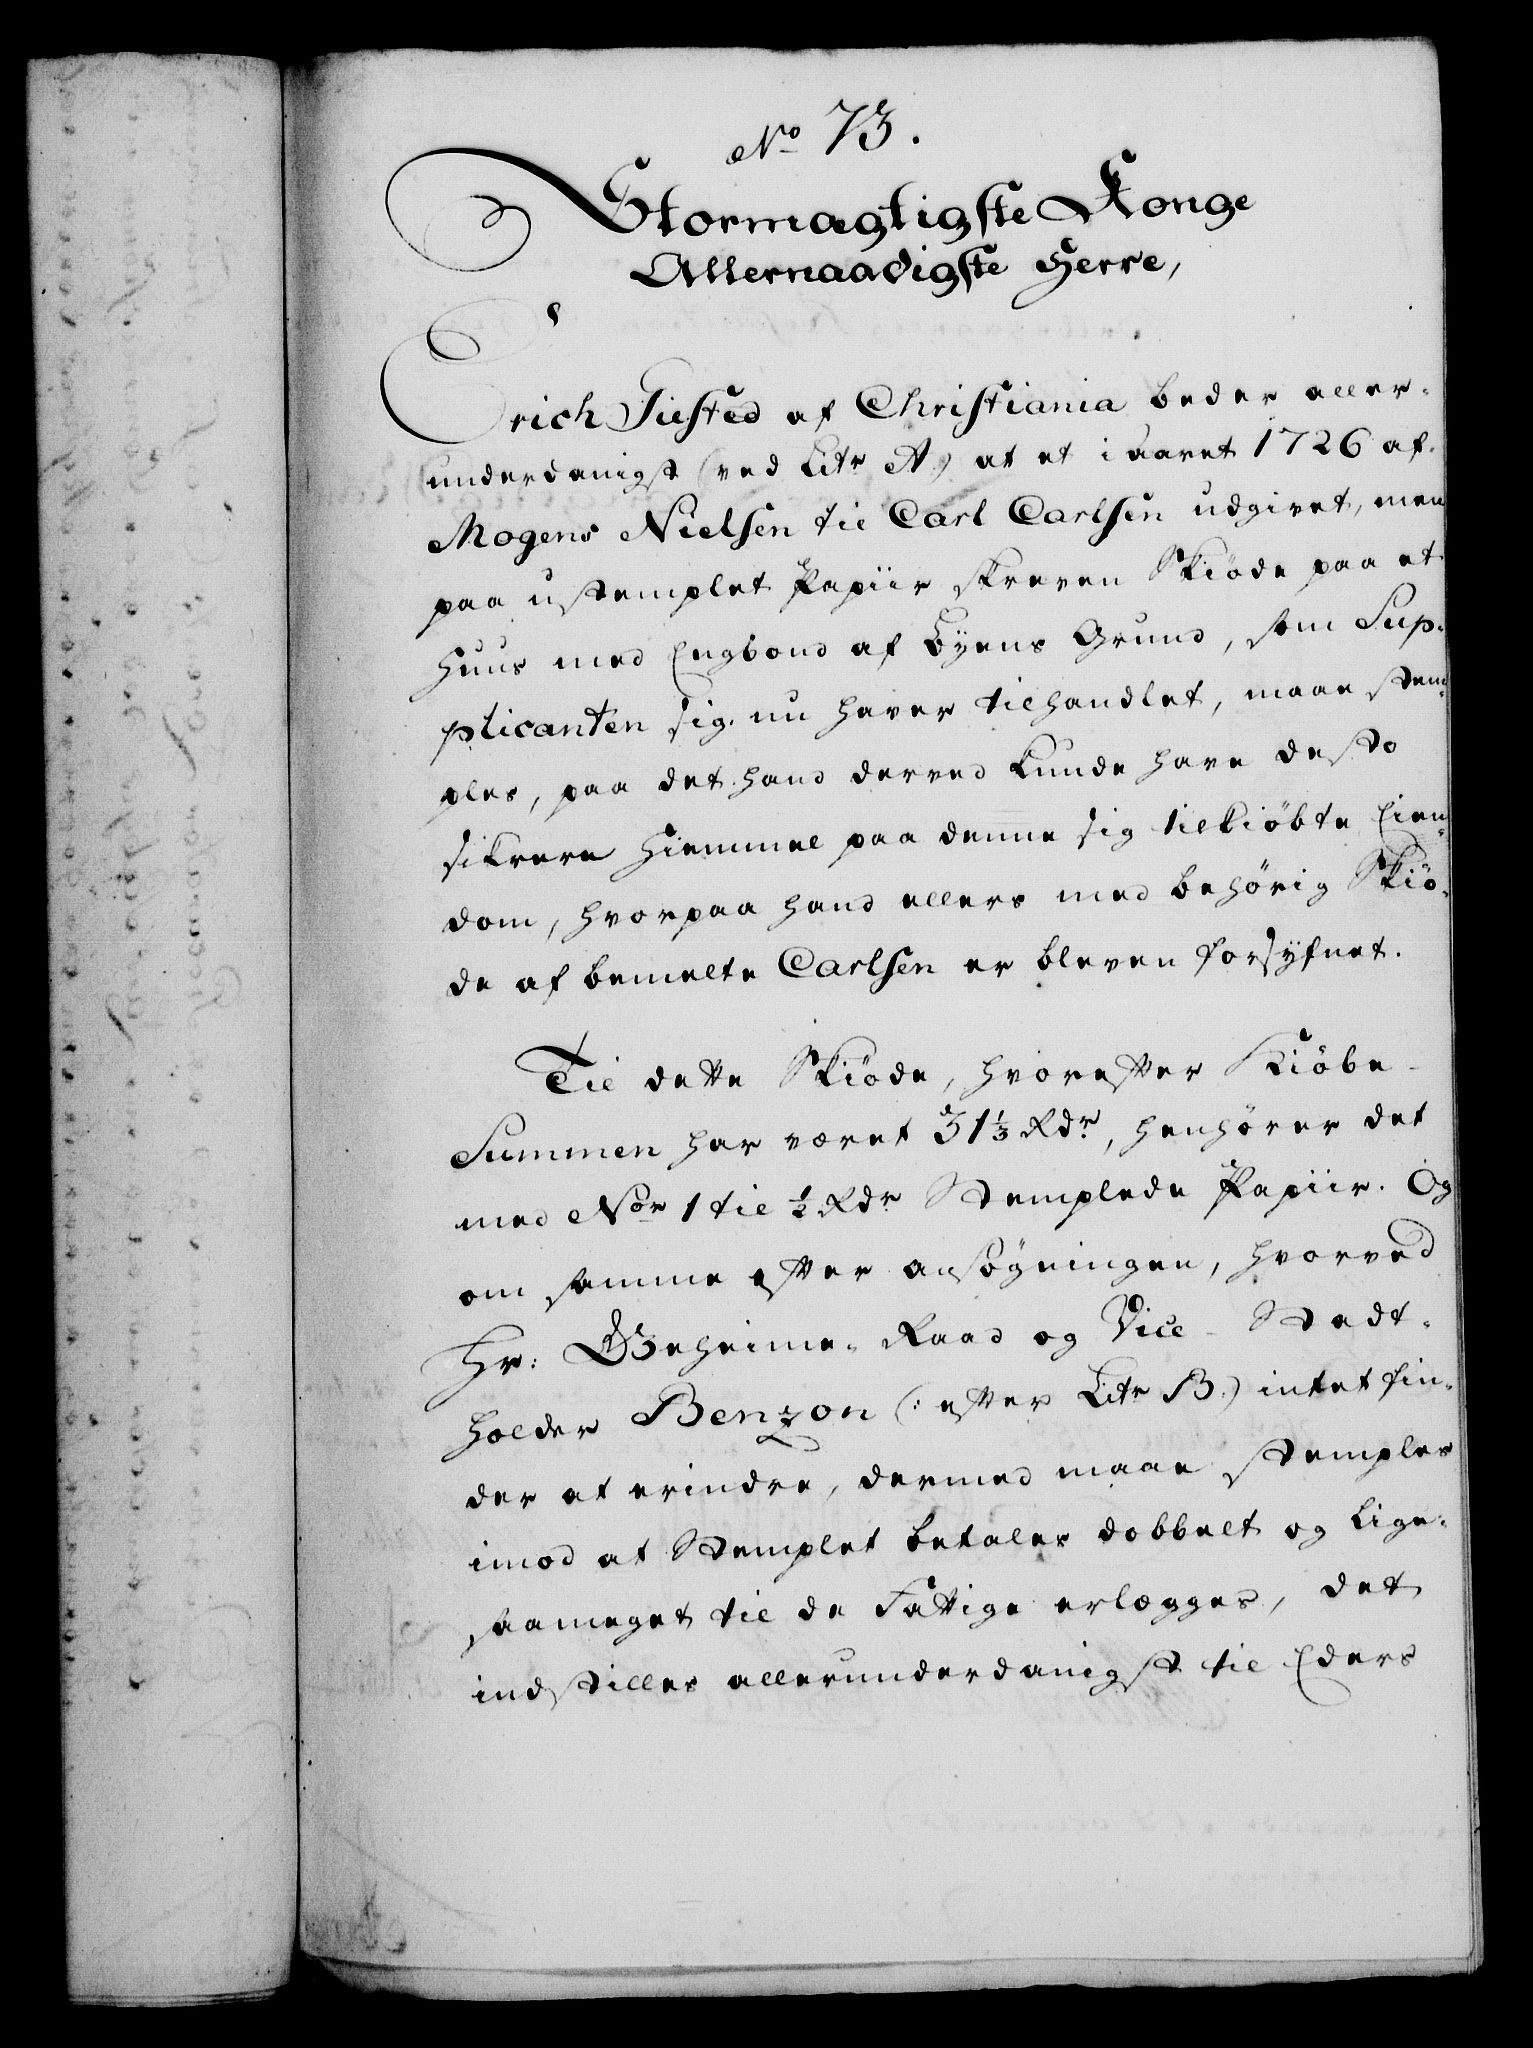 No 73.
Stormægtigste Konge
Allernaadigste Herre,
Erich Tiefted af Christiania beder aller-
underdanigst (ved Litr A.) at et i aaret 1726 af
Mogens Nielsen til Carl Carlsen udgivet, men
paa ustemplet Papiir skreven Skiöde paa et
Huus med Engbond af Byens Grund, som Sup-
plicanten sig nu haver tilhandlet, maae stem-
ples, paa det hand derved kunde have desto
sikrere Hiemmel paa denne sig tilkiöbte Eien-
dom, hvorpaa hand ellers med behörig Skiö-
de af bemelte Carlsen er bleven forsÿfnet.
Til dette Skiöde, hvorefter Kiöbe-
Summen har været 31 1/3 Rdr, henhörer det
med Nor 1 til 1/2 Rdr Stemplede Papiir. Og
om samme efter ansögningen, hvorved
Hr: Geheime-Raad og Vice-Stadt-
holder Benzon (: efter Litr B.) intet fin-
der at erindre, dermed maae stemples
imod at Stemplet betales dobbelt og lige-
saameget til de Fattige erlægges, det
indstilles allerunderdanigst til Eders